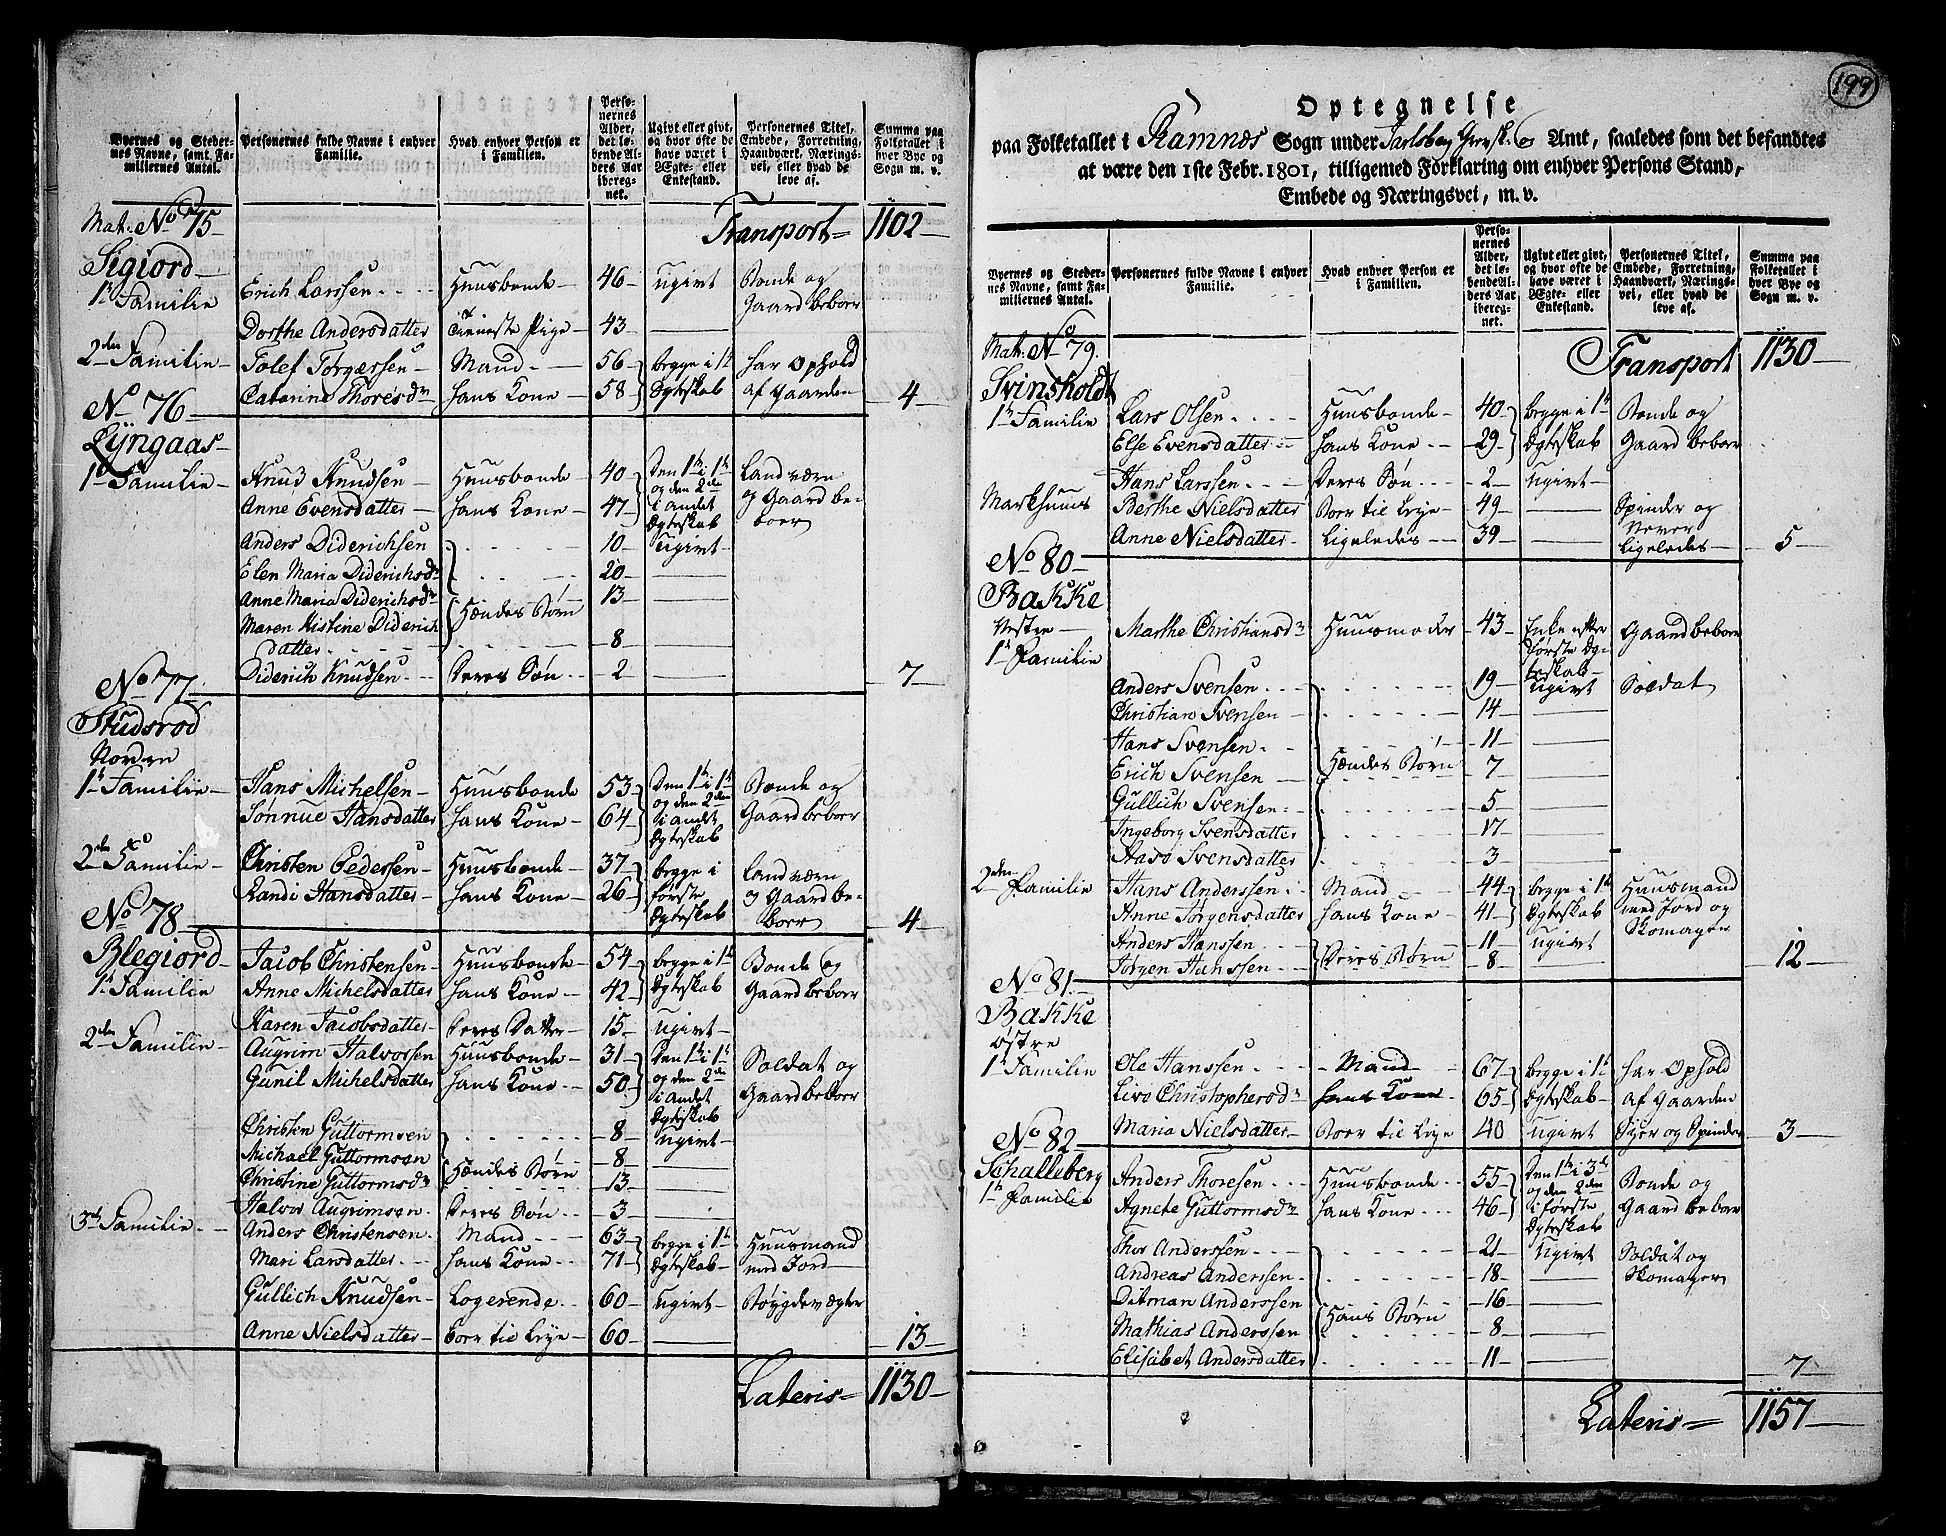 Byernes og Stedernes Navne, samt Familiernes Antal.
Personernes fulde Navne i enhver Familie.
Hvad enhver Person er i Familien.
Personernes Alder, det løbende Alders Aar iberegnet.
Ugivt eller givt, og hvor ofte de have været i Ægte- eller Enkestand.
Personernes Titel, Embede, Forretning, Haandværk, Næringsvei, eller hvad de leve af.
Summa paa Folketallet i hver Bye og Sogn m. v.
Mat. No 75 Transport 1102
Sigiord
1te Familie Erich Larssen Huusbonde 46 ugivt Bonde og Gaard beboer
Dorthe Andersdatter tieneste Pige 43
2den Familie Tolef Torgerssen Mand 56 begge i 1te har Ophold
Catarine Thoresdr hans Kone 58 Ægteskab af Gaarden 4
No 76
Lÿngaas
1te Familie Knud Knudsen Huusbonde 40 Den 1te i 1te Landværn
Anne Evensdatter hans Kone 47 og den 2den i andet Ægteskab og Gaard beboer
Anders Diderichsen 10 ugivt
Elen Maria Diderichsdr 20
Anne Maria Diderichsdr Hendes Børn 13
Maren Kistine Diderichdatter 8
Diderich Knudsen Deres Søn 2 7
No 77
Studsrød
Nordre
1te Familie Hans Michelsen Huusbonde 53 Den 1te i 1te Bonde og
Sønnue Hansdatter hans Kone 64 og den 2den i andet Ægteskab Gaard beboer
2den Familie Christen Pedersen Huusbonde 37 begge i Landværn
Randi Hansdatter hans Kone 26 første Ægteskab og Gaard beboer 4
No 78
Blegiord Jacob Christensen Huusbonde 54 begge i 1te Bonde og
1te Familie Anne Michelsdatter hans Kone 42 Ægteskab Gaard beboer
Karen Jacobsdatter Deres Datter 15 ugivt
2den Familie Augrim Halvorsen Huusbonde 31 Den 1te i 1te Soldat og
Gunil Michelsdatter hans Kone 50 og den 2den i andet Ægteskab Gaard beboer
Christen Guttormsen 8 ugivt
Michael Guttormsen Hendes Børn 8
Christine Guttormsdr 13
Halvor Augrimsen Deres Søn 3
3die Familie Anders Christensen Mand 63 begge i 1te Huusmand
Mari Larsdatter hans Kone 71 Ægteskab med Jord
Gullich Knudsen Logerende 60 ugivt Bøygdevægter
Anne Nielsdatter boer til Leje 60 13
Lateris 1130
199
Optegnelse
paa Folketallet i Ramnæs Sogn under Jarlsberg Grevsk. Amt, saaledes som det befandtes
at være den 1ste Febr. 1801, tilligemed Forklaring om enhver Persons Stand,
Embede og Næringsvei, m. v.
Byernes og Stedernes Navne, samt Familiernes Antal.
Personernes fulde Navne i enhver Familie.
Hvad enhver Person er i Familien.
Personernes Alder, det løbende Alders Aar iberegnet.
Ugivt eller givt, og hvor ofte de have været i Ægte- eller Enkestand.
Personernes Titel, Embede, Forretning, Haandværk, Næringsvei, eller hvad de leve af.
Summa paa Folketallet i hver Bye og Sogn m. v.
Mat. No 79. Transport 1130
Svinsholdt
1te Familie Lars Olsen Huusbonde 40 begge i 1te Bonde og
Else Evensdatter hans Kone 29 Ægteskab Gaard beboer
Hans Larssen Deres Søn 2 ugivt
Markhuus Berthe Nielsdatter Boer til Leje 49 Spinder og Væver
Anne Nielsdatter Ligeledes 39 Ligeledes 5
No 80
Bakke
Vestre Marthe Christiansdr Huusmoder 43 Enke efter første Ægteskab Gaard beboer
1te Familie
Anders Svensen 19 ugivt Soldat
Christian Svensen 14
Hans Svensen 11
Erich Svensen Hendes Børn 7
Gullich Svensen 5
Ingeborg Svensdatter 17
Aase Svensdatter 3
2den Familie Hans Anderssen Mand 44 begge i 1te Huusmand
Anne Jørgensdatter hans Kone 41 Ægteskab med Jord og
Anders Hanssen Deres Børn 11 ugivt Skomager
Jørgen Hanssen 8 12
No 81
Bakke
Østre
1te Familie Ole Hanssen Mand 67 begge i 1te har Ophold
Live Christophersdr hans Kone 65 Ægteskab af Gaarden
Maria Nielsdatter Boer til Leje 40 ugivt Syer og Spinder 3
No 82
Schalleberg Anders Thoresen Huusbonde 55 Den 1te i 3die Bonde og
1te Familie Agnete Guttormsdr hans Kone 46 og den 2den i første Ægteskab Gaard beboer
Thor Anderssen 21 Ugivt Soldat og
Andreas Anderssen 18 Skomager
Ditman Anderssen Hans Børn 16
Mathias Anderssen 8
Elisabet Andersdatter 11 7
Lateris 1157